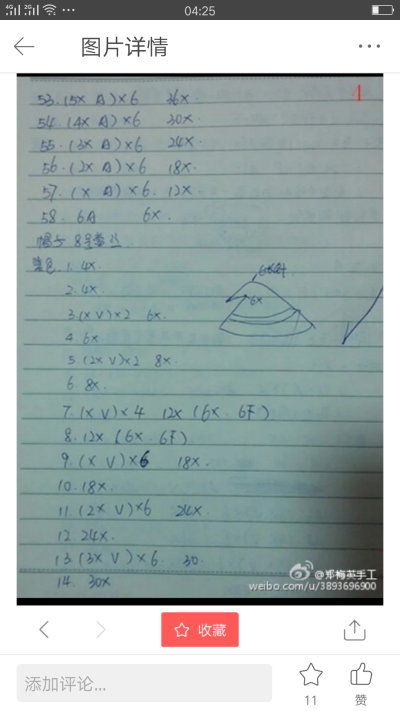 04:25
图片详情
4
53.(5x A)×6 36x.
54.(4x A)×6 30x.
55.(3x A)×6 24x.
56.(2x A)×6 18x.
57.(x A)×6. 12x
58. 6A 6x.
帽子 8号
1. 4x.
2. 4x.
3.(x V)×2 6x.
4. 6x.
5.(2x V)×2 8x.
6. 8x.
7.(x V)×4 12x (6x. 6F)
8. 12x (6x. 6F)
9.(x V)×6 18x.
10. 18x.
11.(2x V)×6 24x.
12. 24x.
13.(3x V)×6. 30.
14. 30x
6x
@郑梅英手工
weibo.com/u/3893696900
收藏
添加评论...
11
赞